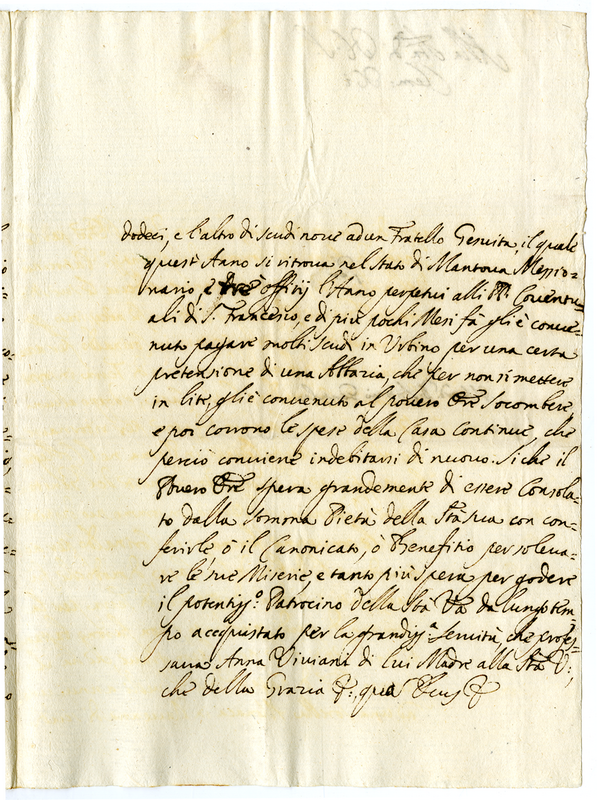 dodeci, e l'altro di scudi nove ad un Fratello Gesuita, il quale
quest'Anno si ritrova nel Stato di Mantova Messio=
nario, e tre offitij l'Anno perpetui alli PP. Conventu
ali di S. Francesco, e di più pochi Mesi fà gli è conve=
nuto pagare molti scudi in Urbino per una certa
pretensione di una Abbazia, che per non si mettere
in lite, gli è convenuto al povero Ore socombere,
e poi corrono le spese della Casa Continue, che
perciò conviene indebitarsi di nuovo. Si che il
Povero Ore spera grandemente di essere Consola=
to dalla somma Pietà della Stà sua con con=
ferirle, ò il Canonicato, ò Benefitio per soleva=
re le sue Miserie, e tanto più spera per godere
il potentiss.o Patrocino della Stà Va da lungo tem
po acquistato per la grandiss.a servitù che profes=
sava Anna Viviani di lui Madre alla Stà V:,
che della Grazia &:, quas Deus &